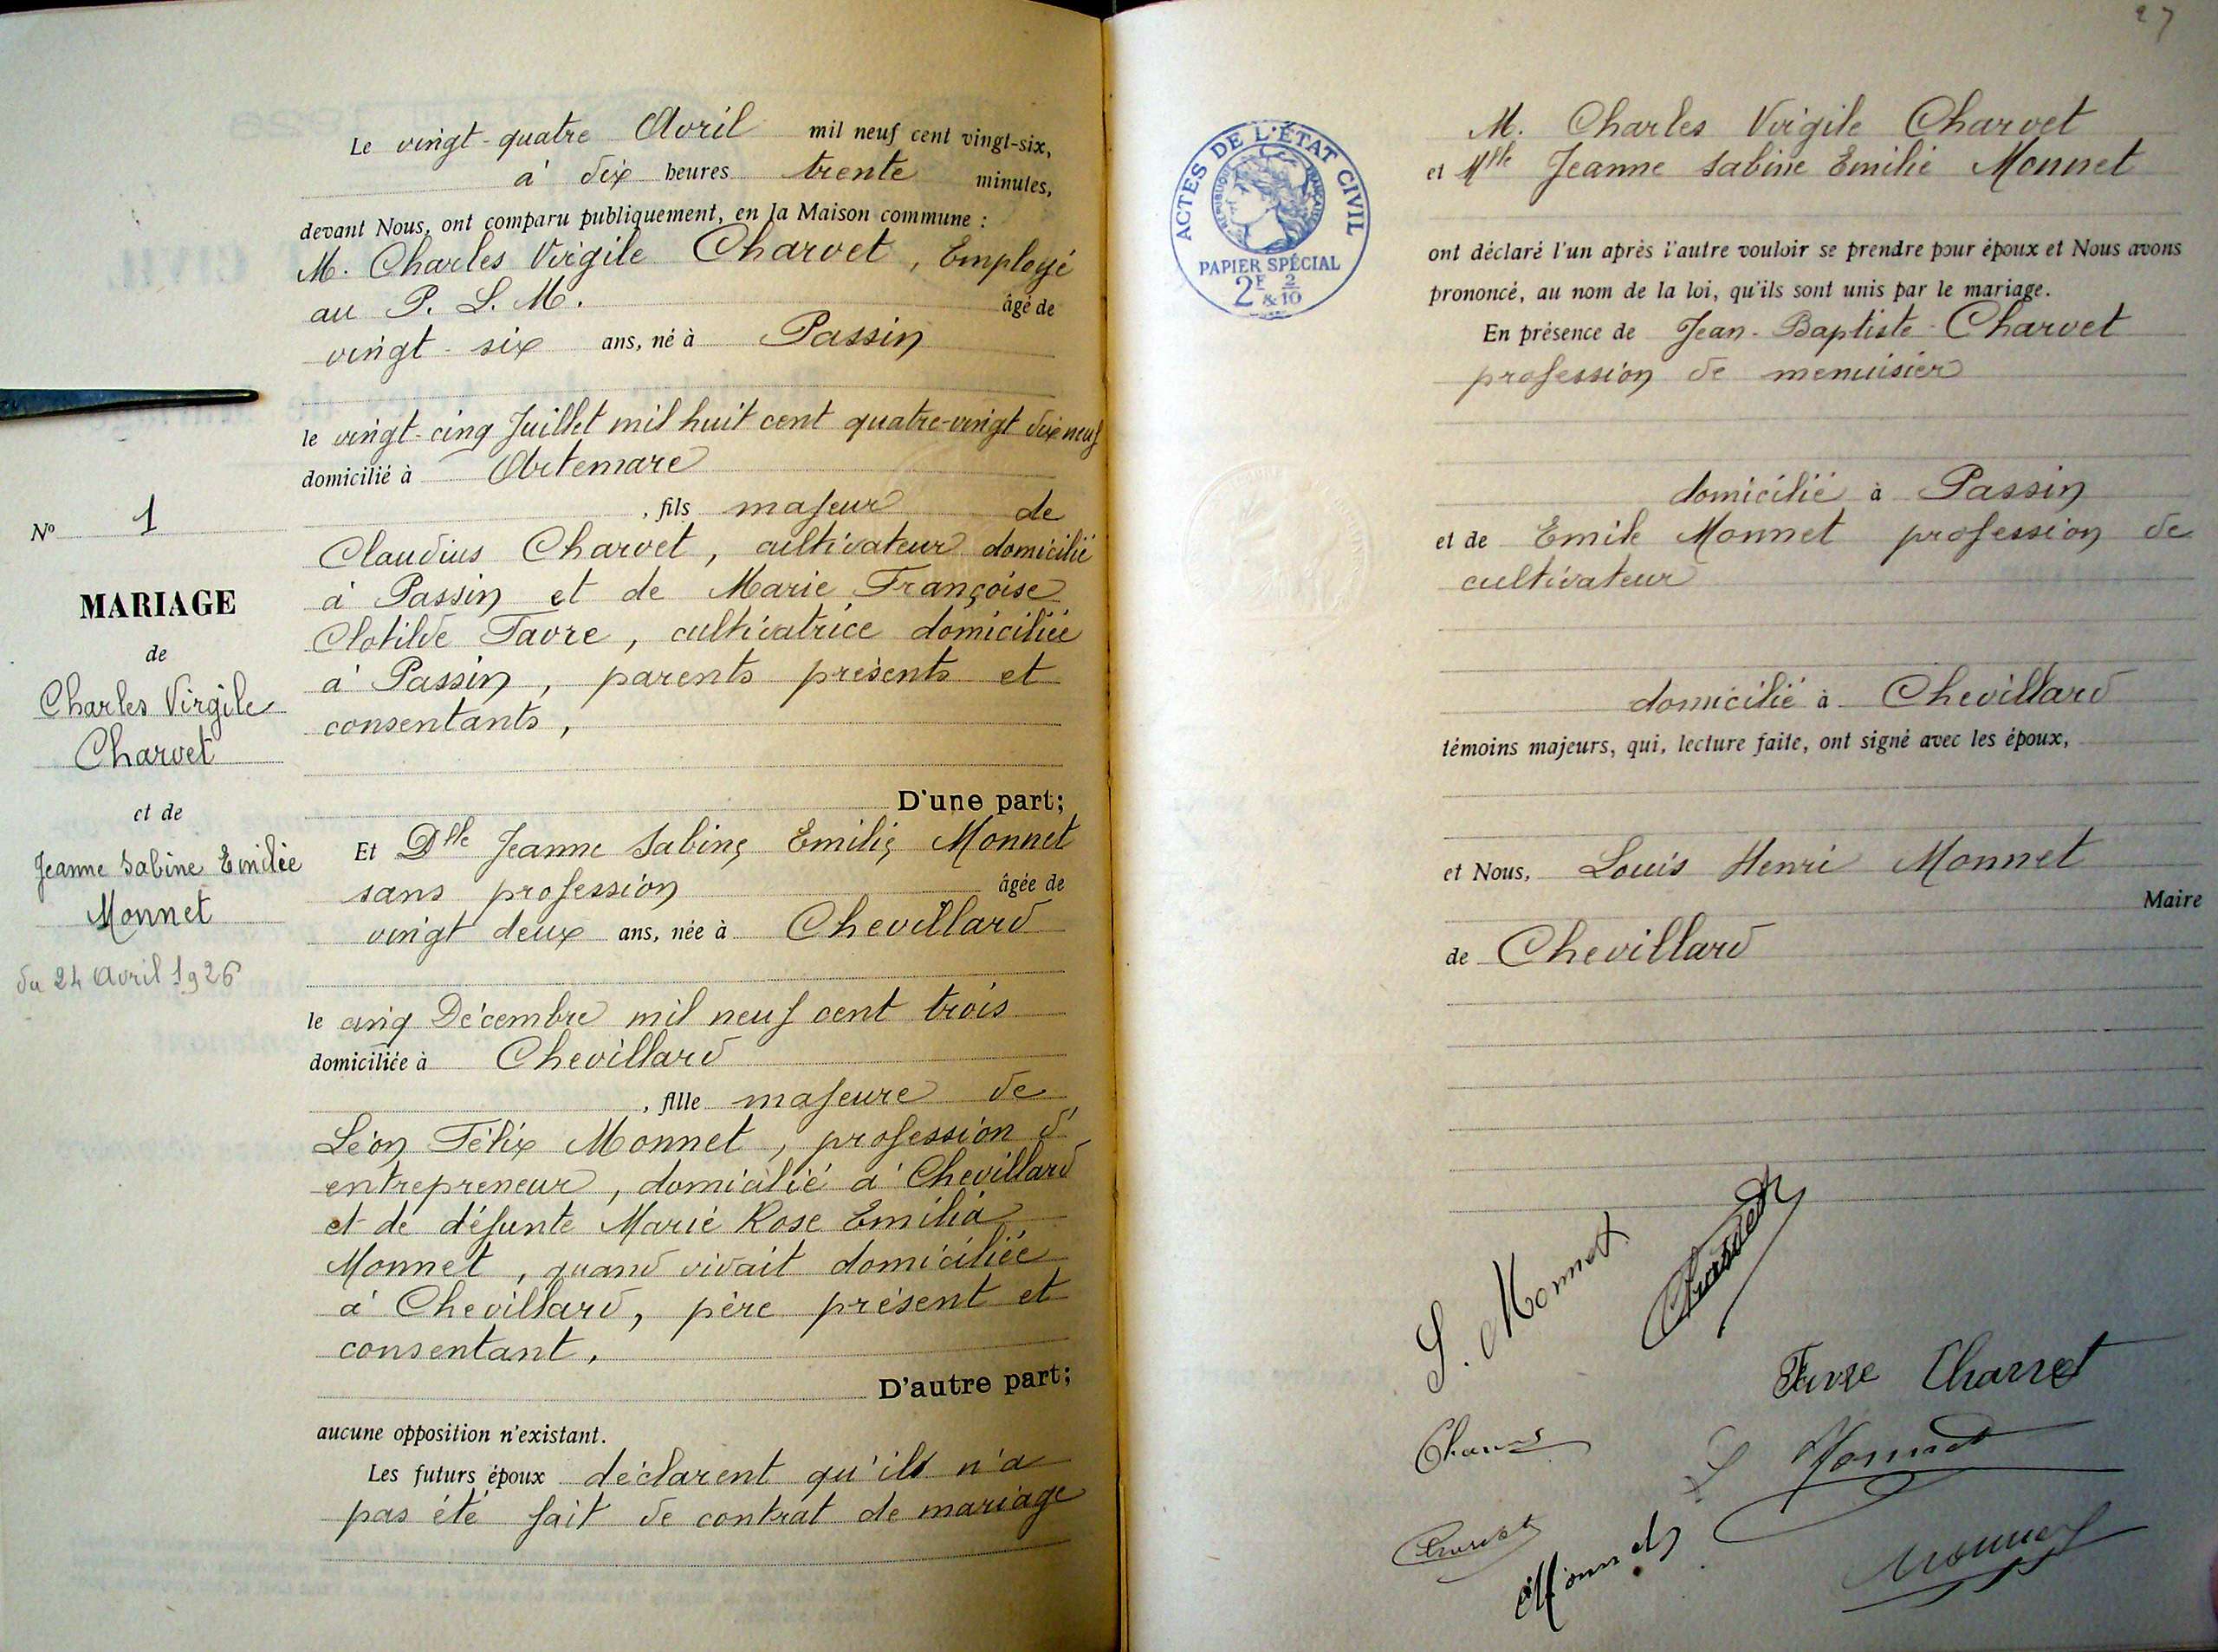 Le vingt-quatre Avril mil neuf cent vingt-six,
à dix heures trente minutes,
devant Nous, ont comparu publiquement, en la Maison commune :
M. Charles Virgile Charvet, Employé
au P. L. M. âgé de
vingt-six ans, né à Passin
le vingt-cinq Juillet mil huit cent quatre-vingt dix neuf
domicilié à Artemare
, fils majeur de
Claudius Charvet, cultivateur domicilié
à Passin et de Marie Françoise
Clotilde Favre, cultivatrice domiciliée
à Passin, parents présents et
consentants,
D'une part;
Et Dlle Jeanne Sabine Emilie Monnet
sans profession âgée de
vingt deux ans, née à Chevillard
le cinq Décembre mil neuf cent trois
domiciliée à Chevillard
, fille majeure de
Léon Félix Monnet, profession d'
entrepreneur, domicilié à Chevillard
et de défunte Marie Rose Emilia
Monnet, quand vivait domiciliée
à Chevillard, père présent et
consentant,
D'autre part;
aucune opposition n'existant.
Les futurs époux déclarent qu'ils n'a
pas été fait de contrat de mariage
No 1
MARIAGE
de
Charles Virgile
Charvet
et de
Jeanne Sabine Emilie
Monnet
du 24 Avril 1926
27
ACTES DE L'ÉTAT CIVIL
RÉPUBLIQUE FRANÇAISE
PAPIER SPÉCIAL
2F & 2/10
M. Charles Virgile Charvet
et Mlle Jeanne Sabine Emilie Monnet
ont déclaré l'un après l'autre vouloir se prendre pour époux et Nous avons
prononcé, au nom de la loi, qu'ils sont unis par le mariage.
En présence de Jean-Baptiste Charvet
profession de menuisier
domicilié à Passin
et de Emile Monnet profession de
cultivateur
domicilié à Chevillard
témoins majeurs, qui, lecture faite, ont signé avec les époux,
et Nous, Louis Henri Monnet
Maire
de Chevillard
S. Monnet
Charvet
Favre Charvet
Charvet
L Monnet
Charvet
Monnet
Monnet